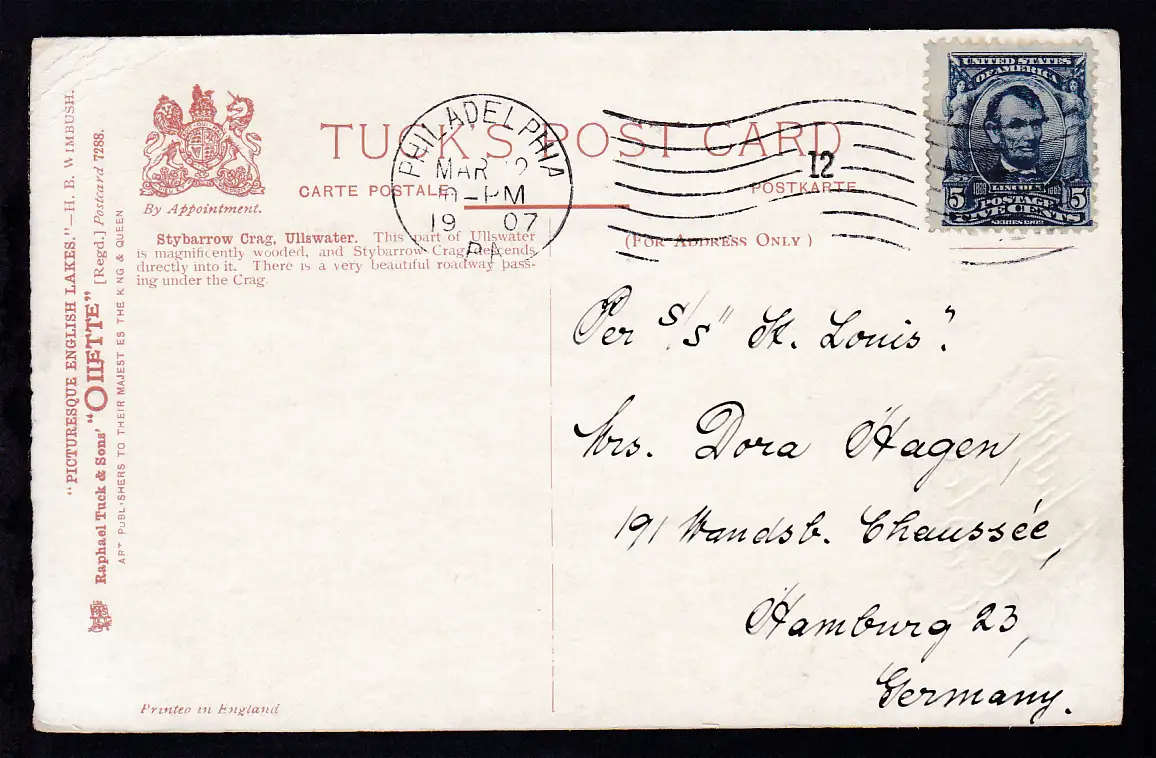 TUCK'S POST CARD
CARTE POSTALE
POSTKARTE
By Appointment.
(FOR ADDRESS ONLY)
Stybarrow Crag, Ullswater. This part of Ullswater
is magnificently wooded, and Stybarrow Crag descends
directly into it. There is a very beautiful roadway pass-
ing under the Crag.
"PICTURESQUE ENGLISH LAKES."—H. B. WIMBUSH.
Raphael Tuck & Sons' "OILETTE" [Regd.] Postcard 7288.
ART PUBLISHERS TO THEIR MAJESTIES THE KING & QUEEN
Printed in England
PHILADELPHIA
MAR 12
-PM
19 07
PA
12
UNITED STATES
OF AMERICA
1809 LINCOLN 1865
5 POSTAGE 5
FIVE CENTS
SERIES 1902
Per S/S "St. Louis".
Mrs. Dora Hagen,
191 Wandsb. Chaussée,
Hamburg 23,
Germany.